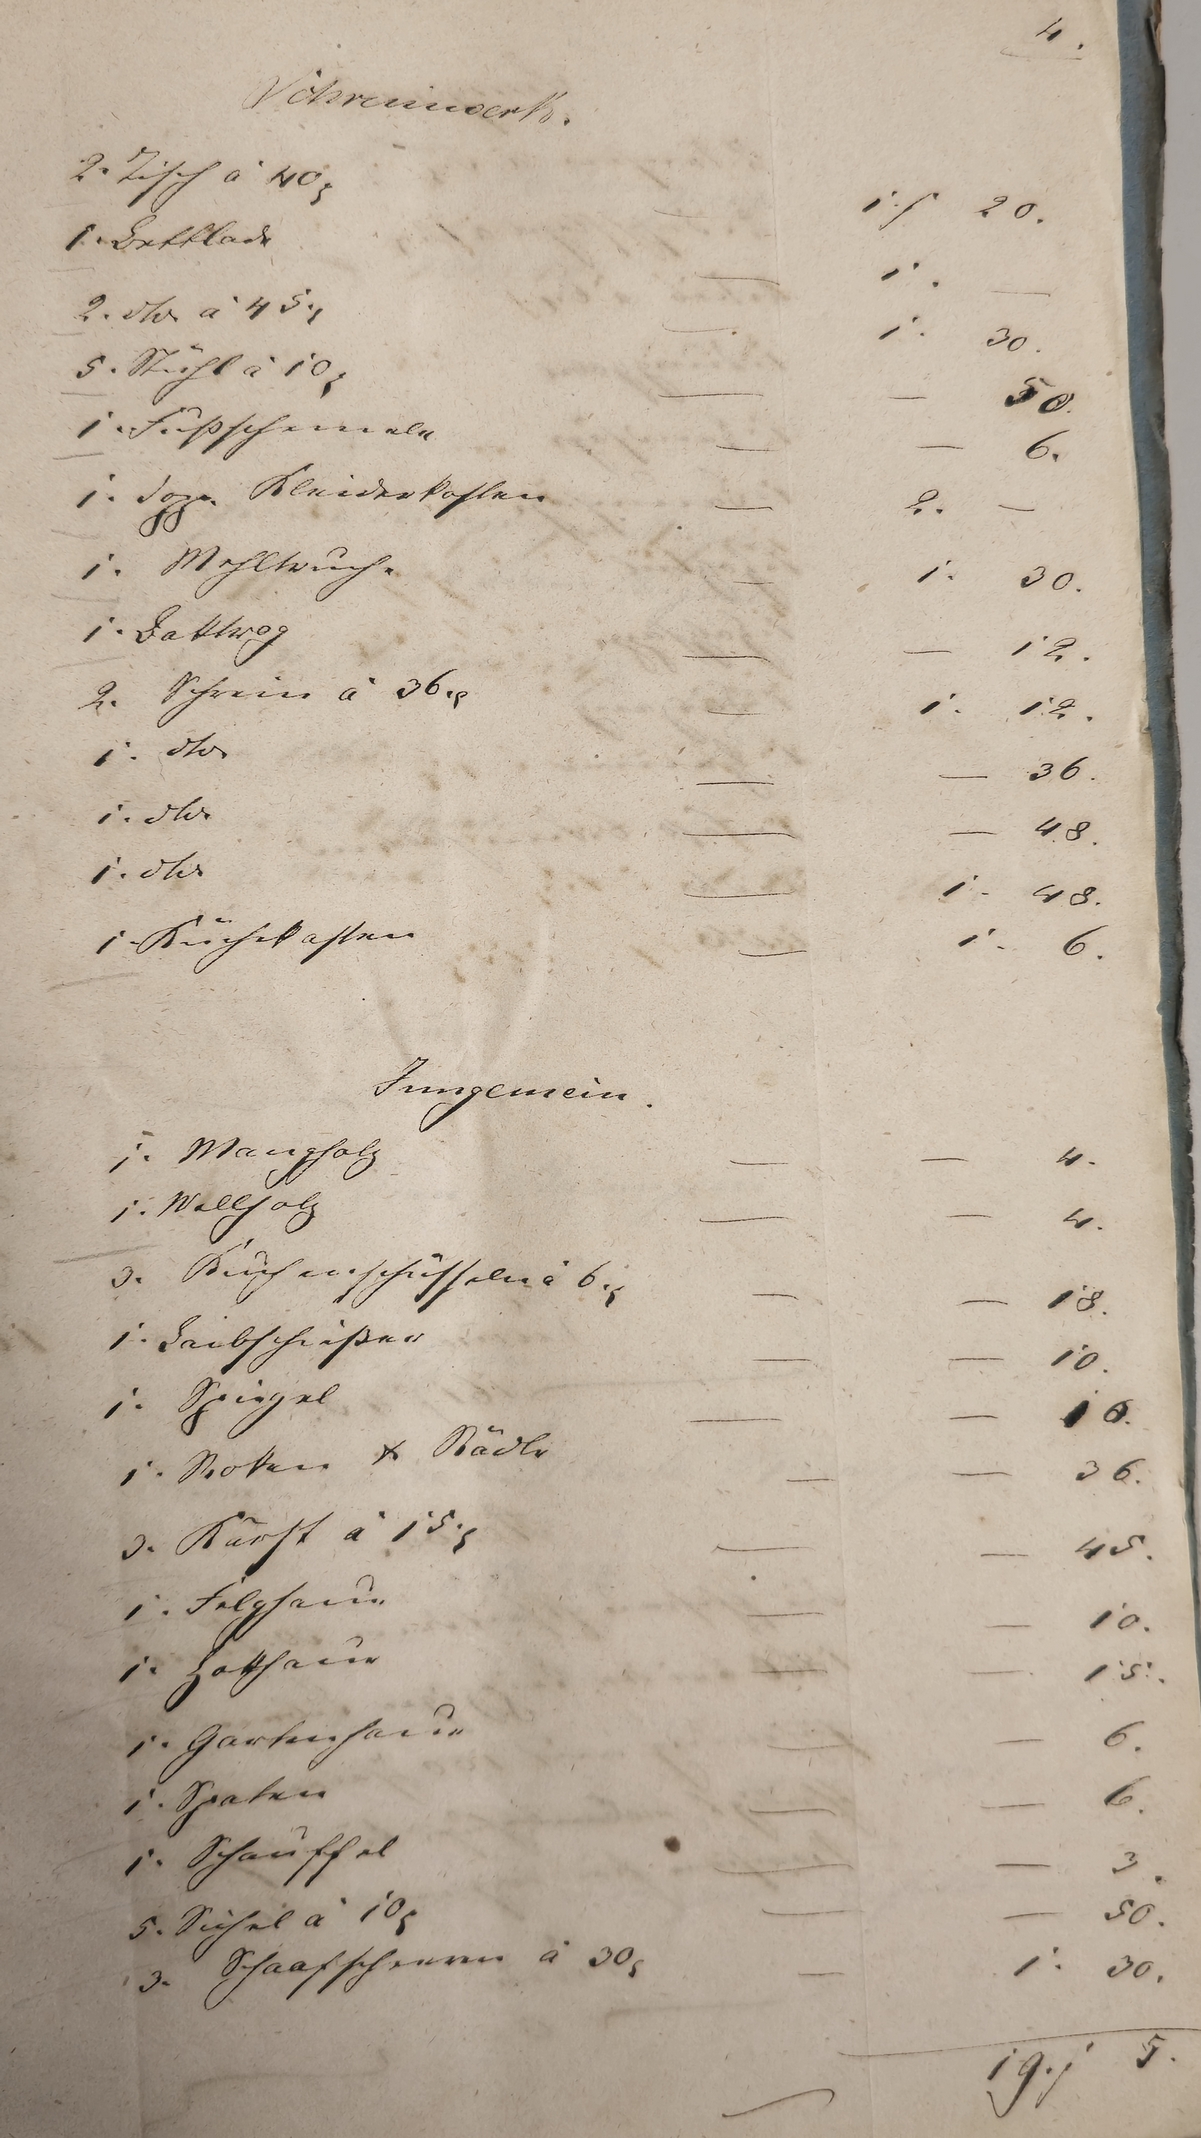 4.
Schreinwerk.
2. Tisch à 40 x 1 f 20.
1. Bettlade — 1. —
2. dto. à 45 x — 1. 30.
5. Stühl à 10 x — — 50.
1. Fußschemele — — 6.
1. dopp. Kleiderkasten — 2. —
1. Mehltruche — 1. 30.
1. Baktrog — — 12.
2. Schrein à 36 x — 1. 12.
1. dto. — — 36.
1. dto. — — 48.
1. dto. — 1. 48.
1. Küchekasten — 1. 6.
Inngemein.
1. Mangholz — — 4.
1. Wellholz — — 4.
3. Kuchenschüsseln à 6 x — — 18.
1. Laibschießer — — 10.
1. Spiegel — — 16.
1. Roken & Rädle — — 36.
3. Kärst à 15 x — — 45.
1. Felghaue — — 10.
1. — — 15.
1. Gartenhaue — — 6.
1. Spaten — — 6.
1. Schauffel — — 3.
5. Sichel à 10 x — — 50.
3. Schaafscheeren à 30 x — 1. 30.
19. f 5.